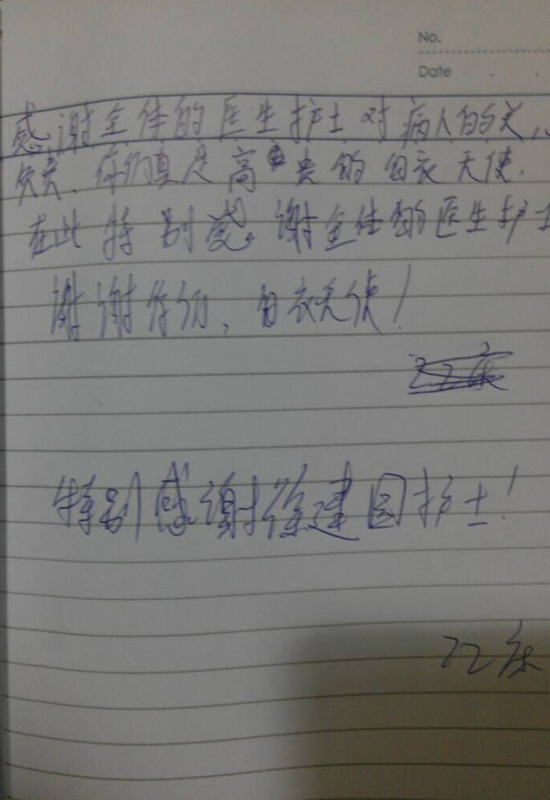 No.
Date
感谢全体的医生护士对病人的关心
你们真是高尚的白衣天使.
在此特别感谢全体的医生护士
谢谢你们，白衣天使！
22床
特别感谢徐建国护士！
22床